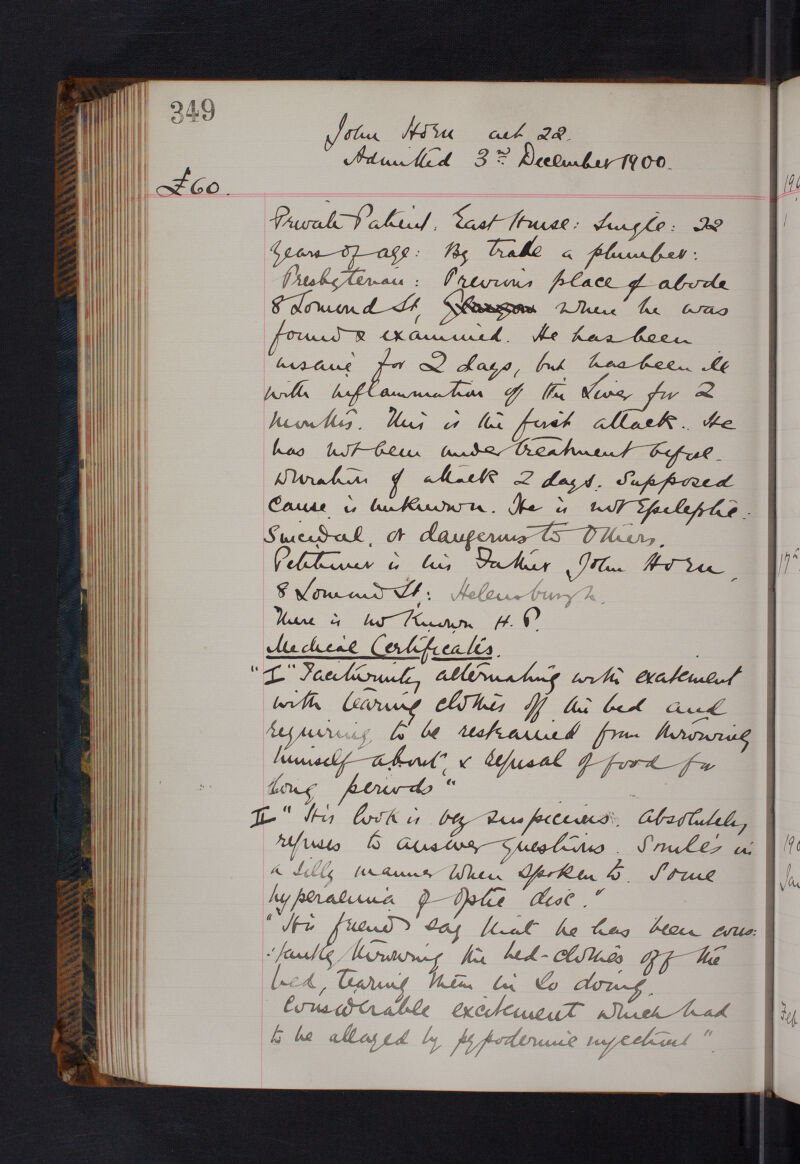 349
John Horn aet 22.
Admitted 3rd December 1900.
£60.
Private Patient. East House: Single: 22
years of age: By trade a plumber:
Presbyterian: Previous place of abode
8 Lomond St, Glasgow where he was
found & examined. He has been
insane for 2 days, but has been ill
with inflammation of the Liver for 2
months. This is the first attack. He
has not been under treatment before.
Duration of attack 2 days. Supposed
Cause is unknown. He is not Epileptic:
Suicidal, or dangerous to Others.
Petitioner is his Father John Horn,
8 Lomond St: Helensburgh.
There is no known H. P.
Medical Certificates.
"I" Taciturnity alternating with excitement
with tearing clothes off the bed and
requiring to be restrained from throwing
himself about, & refusal of food for
long periods"
II "His look is very suspicious. Absolutely
refuses to answer questions. Smiles in
a silly manner when spoken to. Some
hyperaemia of Optic disc."
"His friends say that he has been cons:
:tantly throwing the bed-clothes off the
bed, tearing them in so doing.
Considerable excitement which had
to be allayed by hypodermic injections"
190
1
17th
190
Jan
Feb